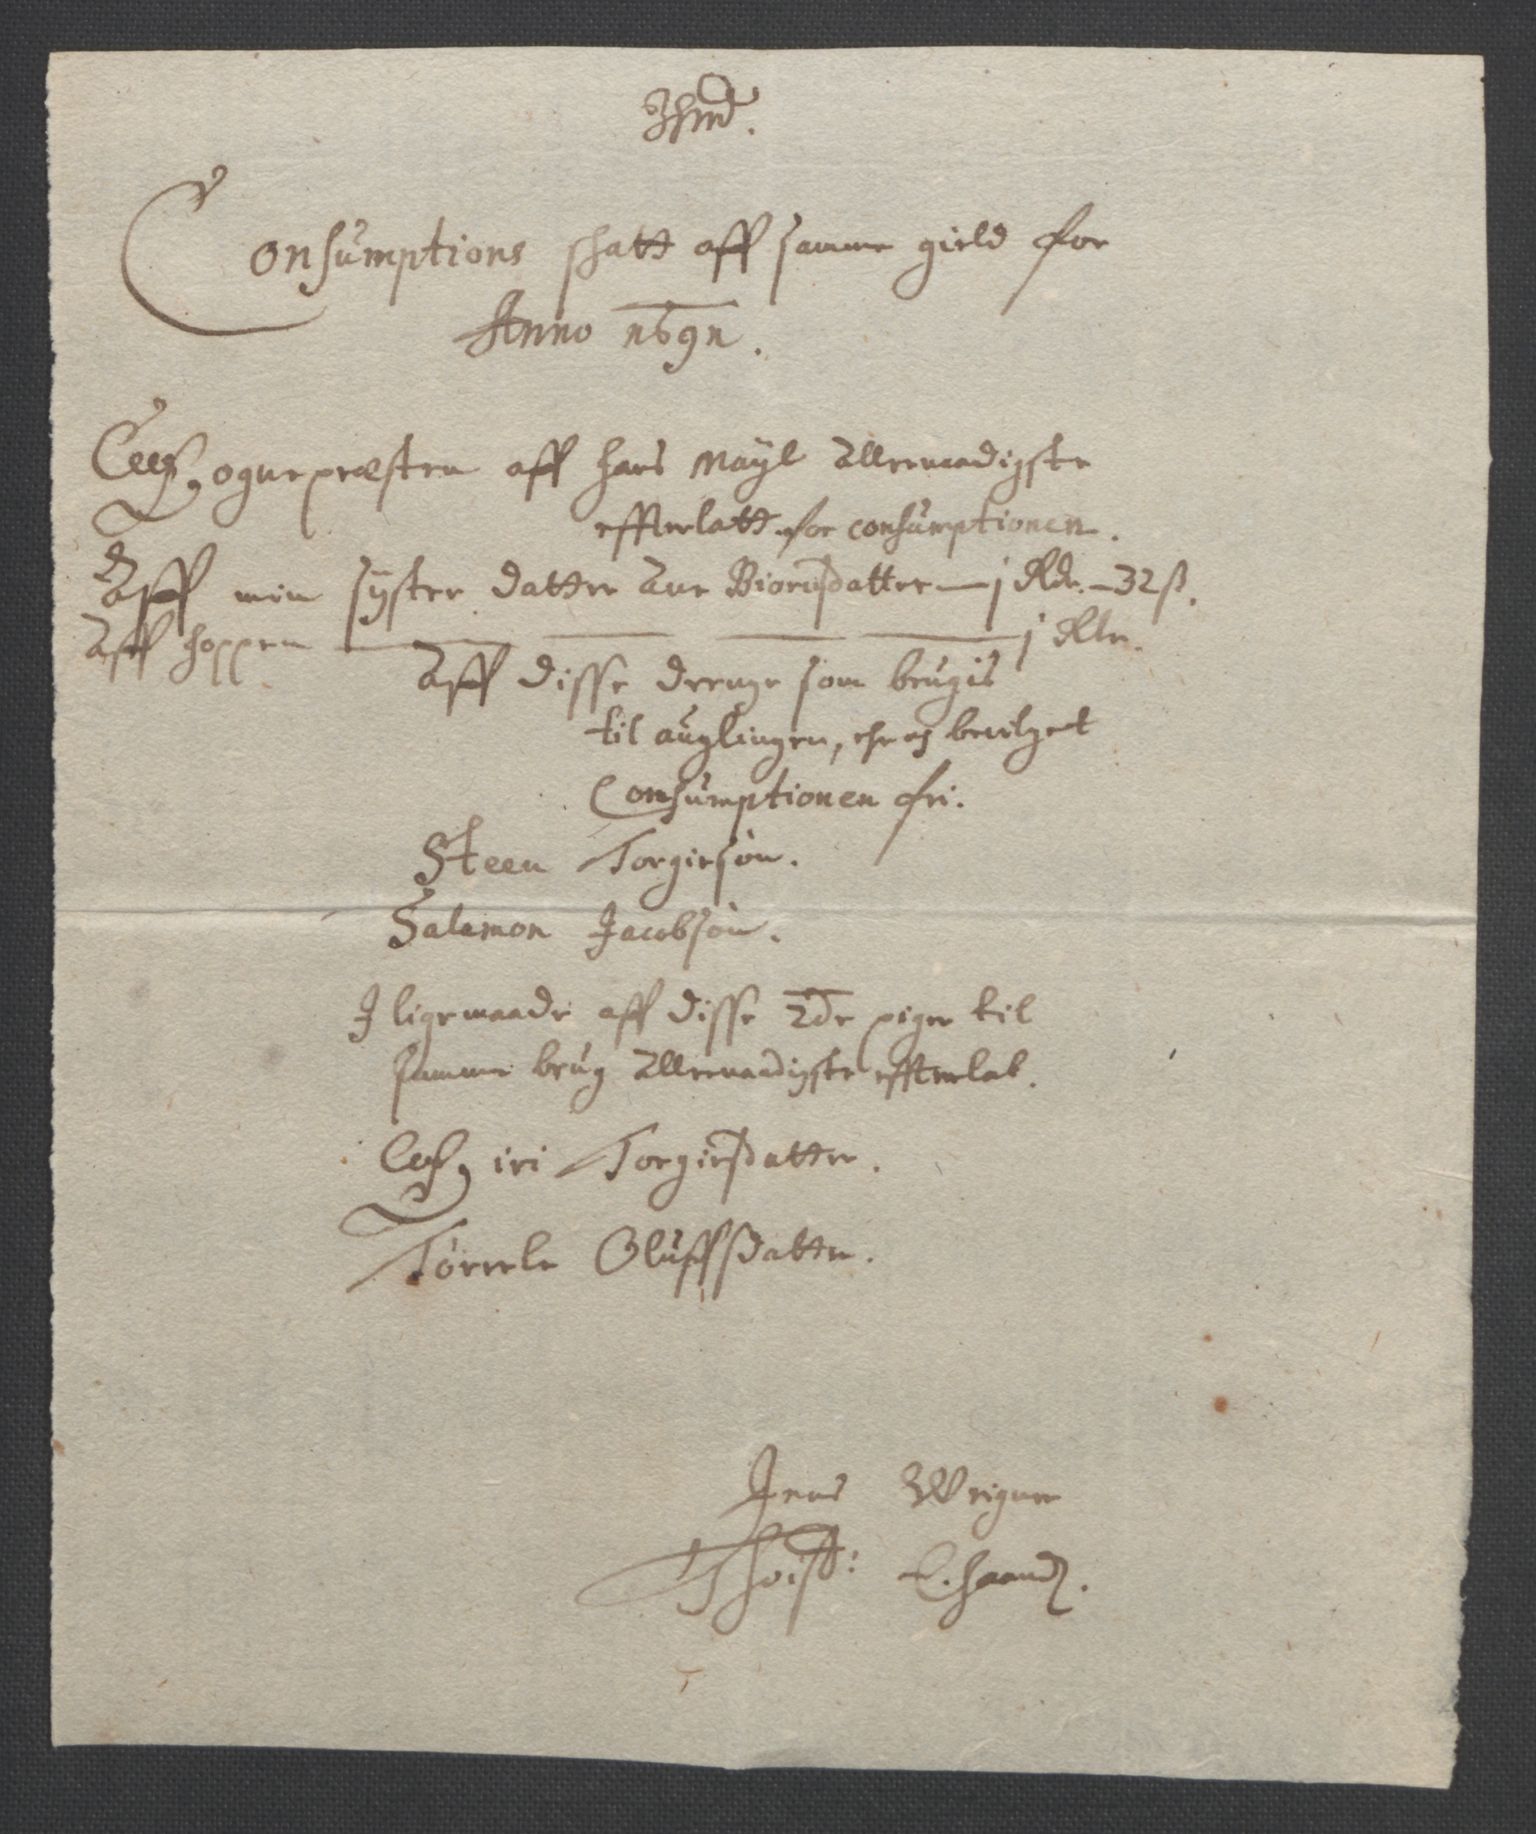 Jhmd.
Consumptions skatt aff samme gield for
Anno 1691.
Sognepræsten aff hans Mayt allernaadigste
effterlatt for consumptionen.
Aff min syster datter Ane Biornsdatter — j Rdr. — 32 ß.
Aff hoppen — — — — j Rdr.
Aff disse drenge som brugis
til auglingen, ehr og bevilget
Consumptionen fri.
Steen Torgierson.
Salamon Jacobsøn.
J ligemaade aff disse 2de piger til
samme brug allernaadigste effterlat.
Siri Torgiersdatter.
Torrele Oluffsdatter.
Jens Weigner
Christ: E. haand.